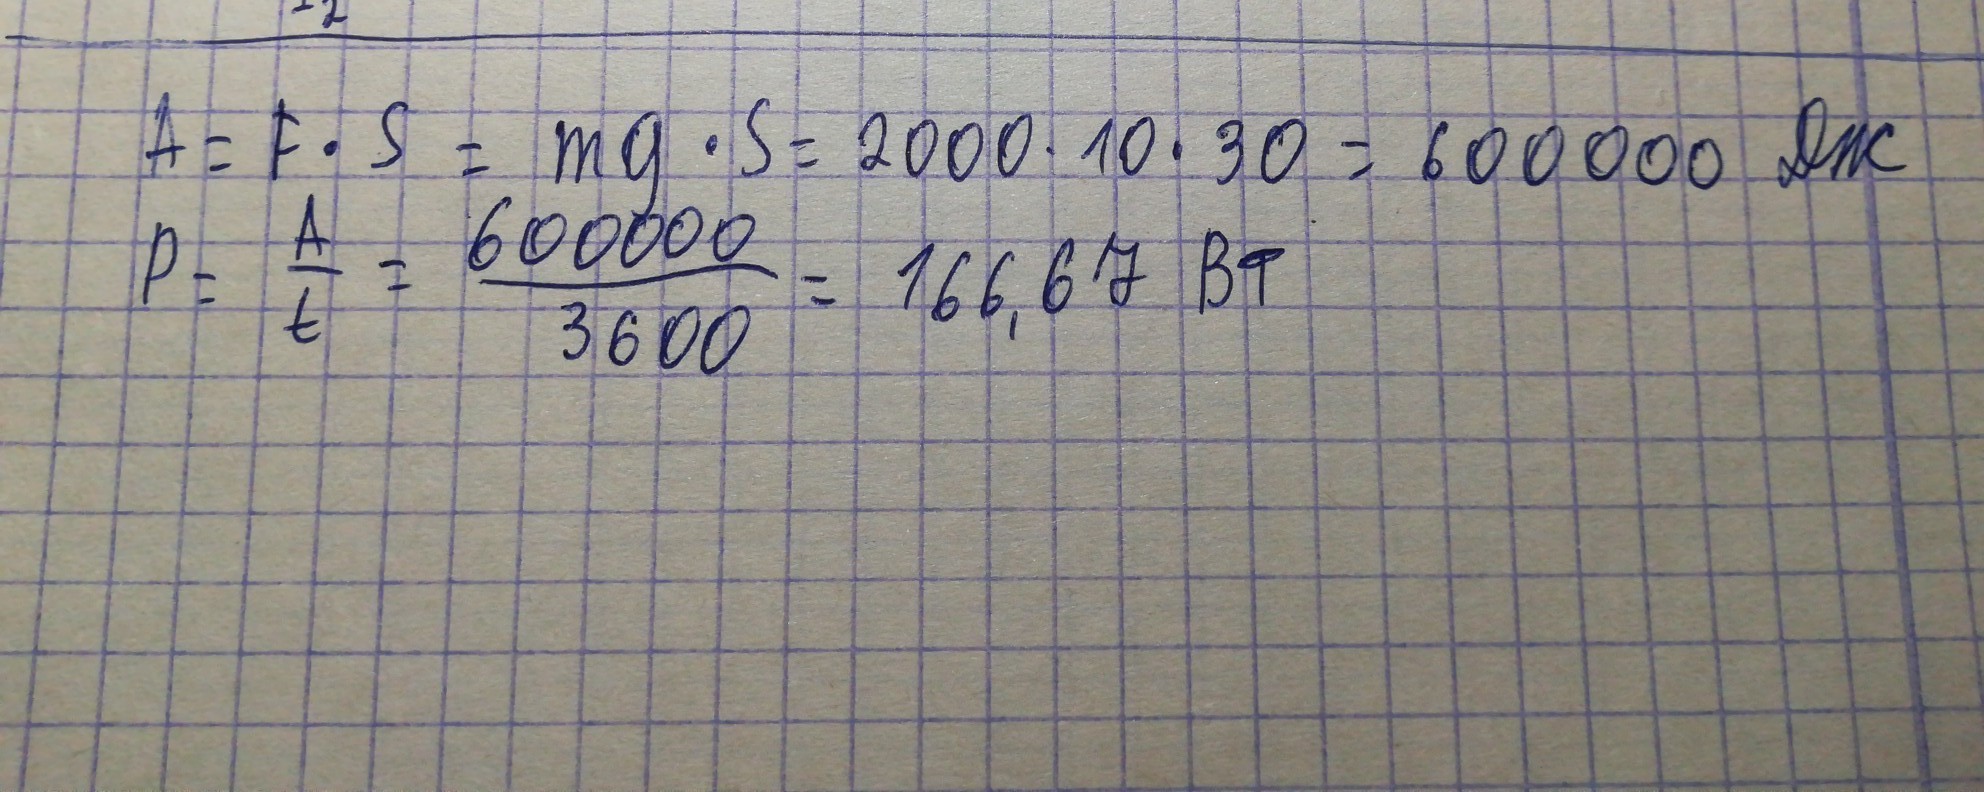 A = F · S = mg · S = 2000 · 10 · 30 = 600000 Дж
P = A/t = 600000/3600 = 166,67 Вт